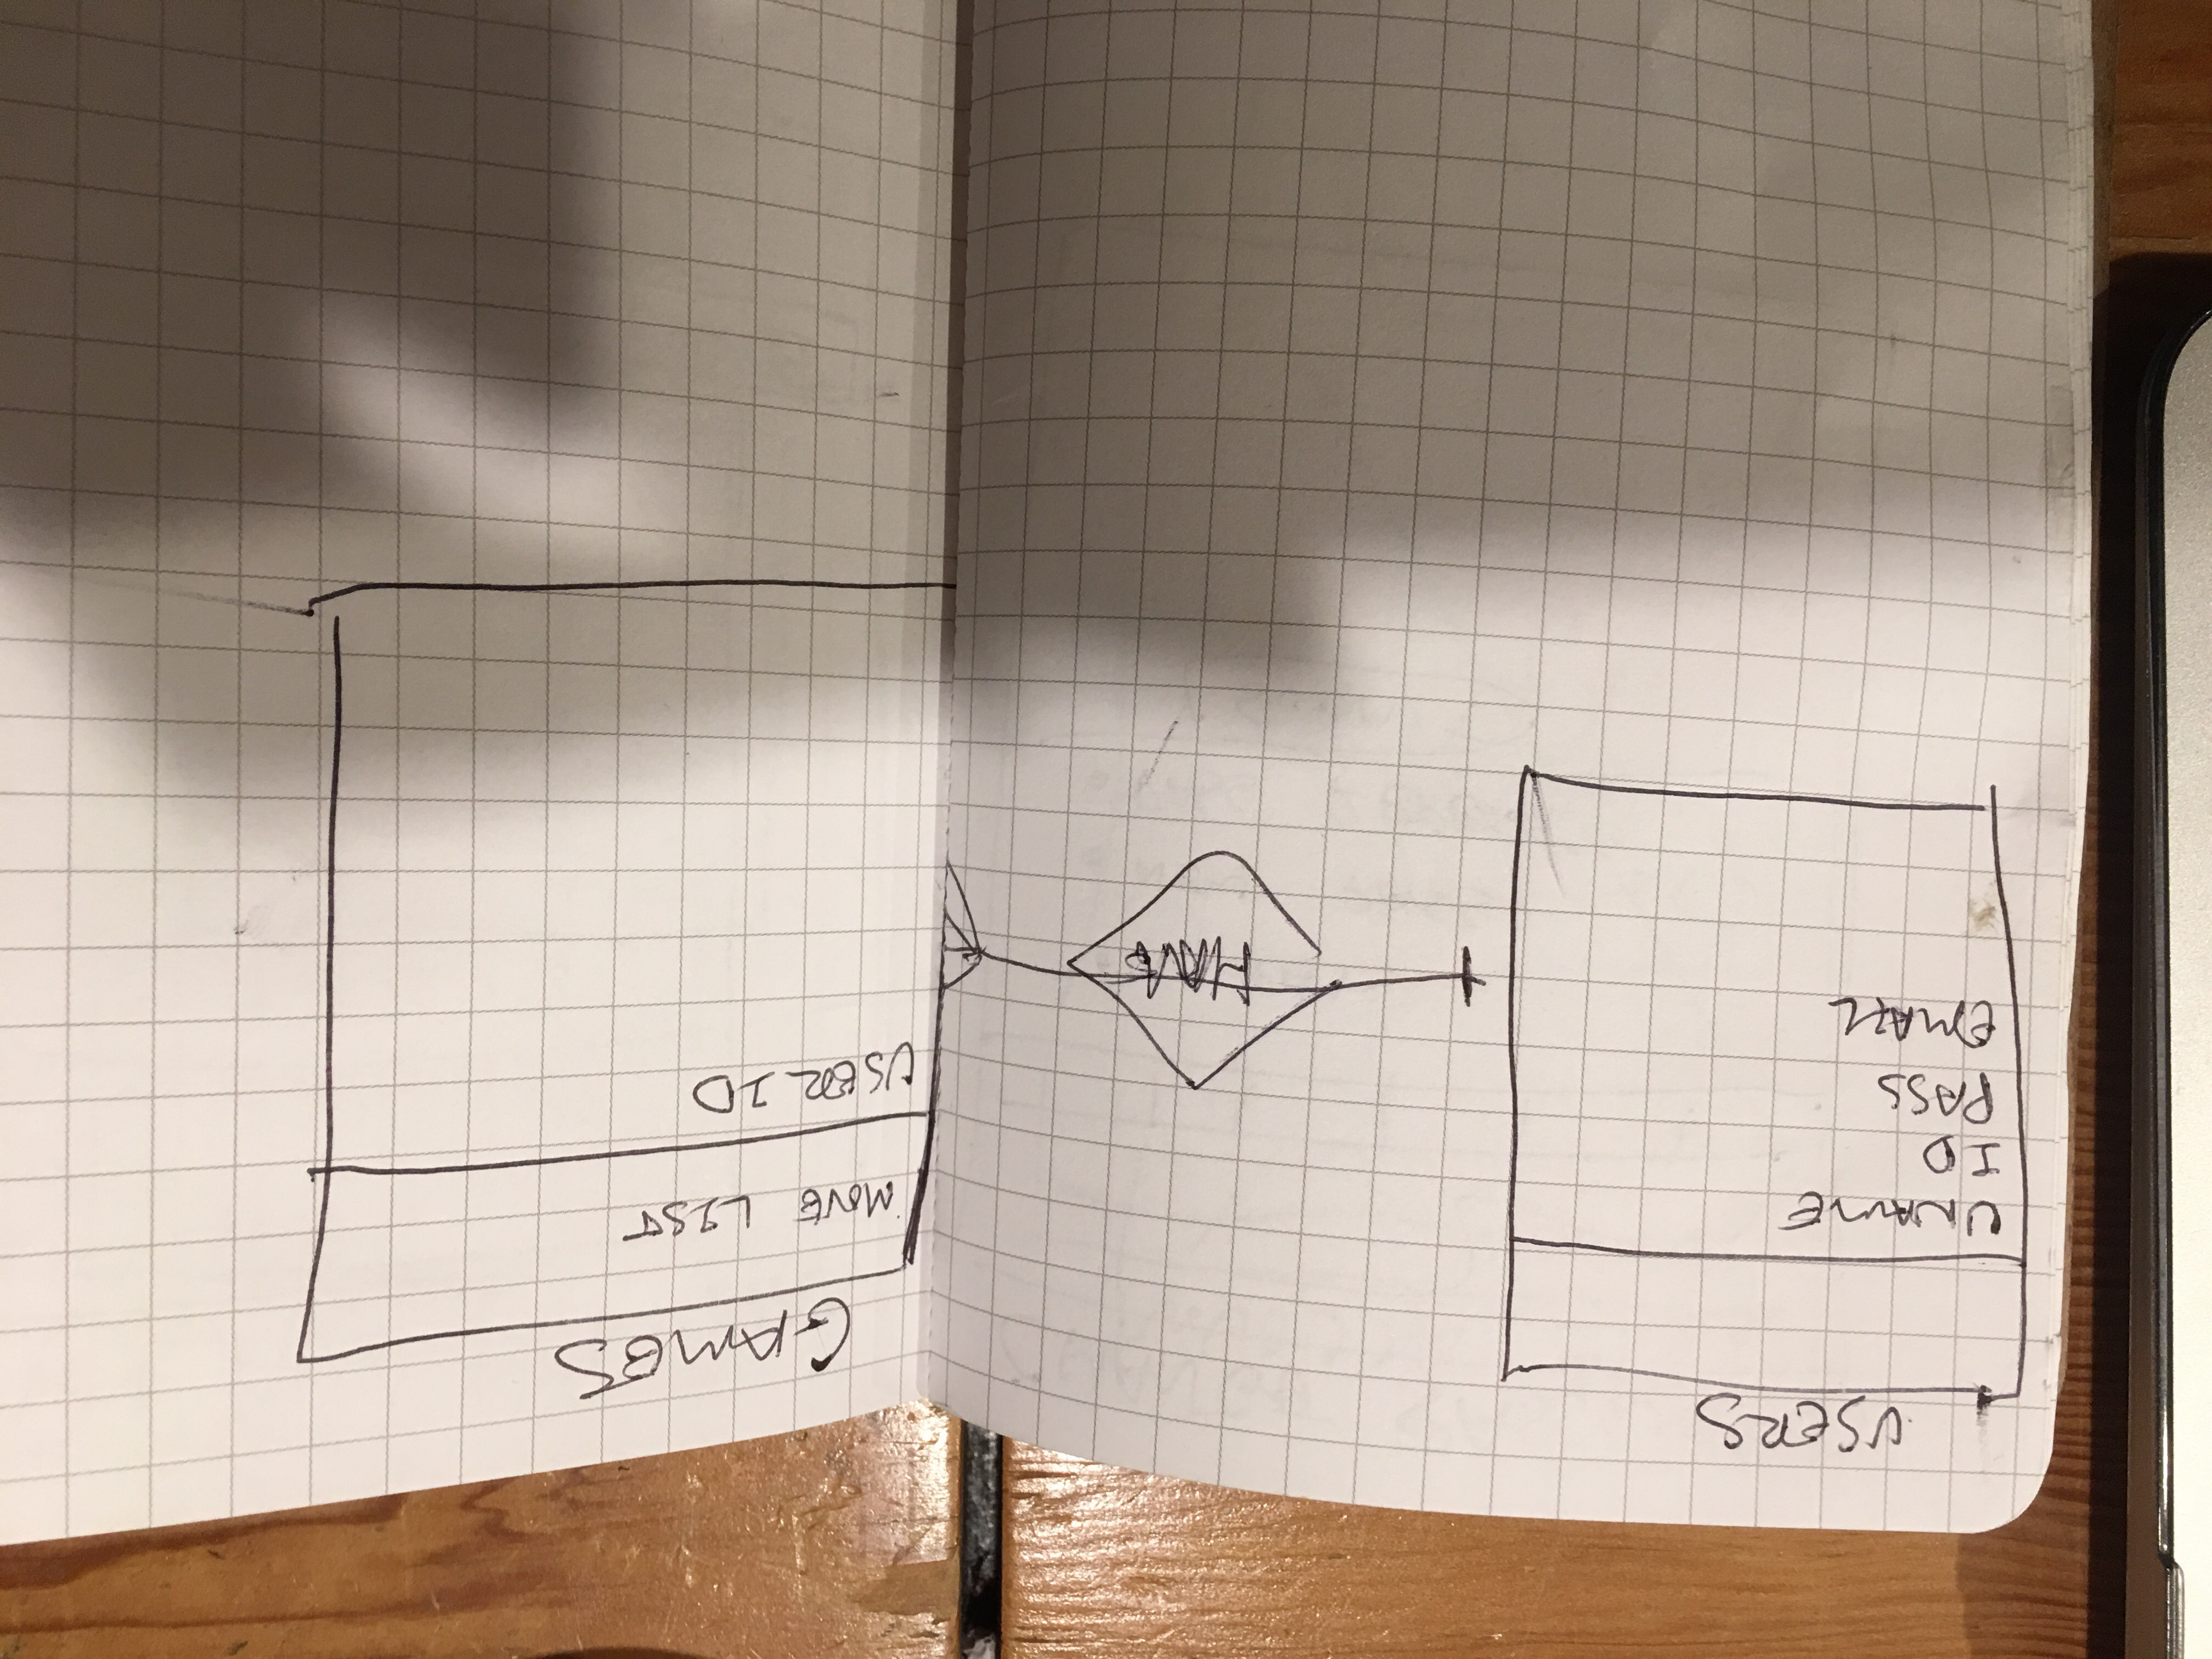 USERS
UNAME
ID
PASS
EMAIL
HAVE
GAMES
MOVE LIST
USER ID